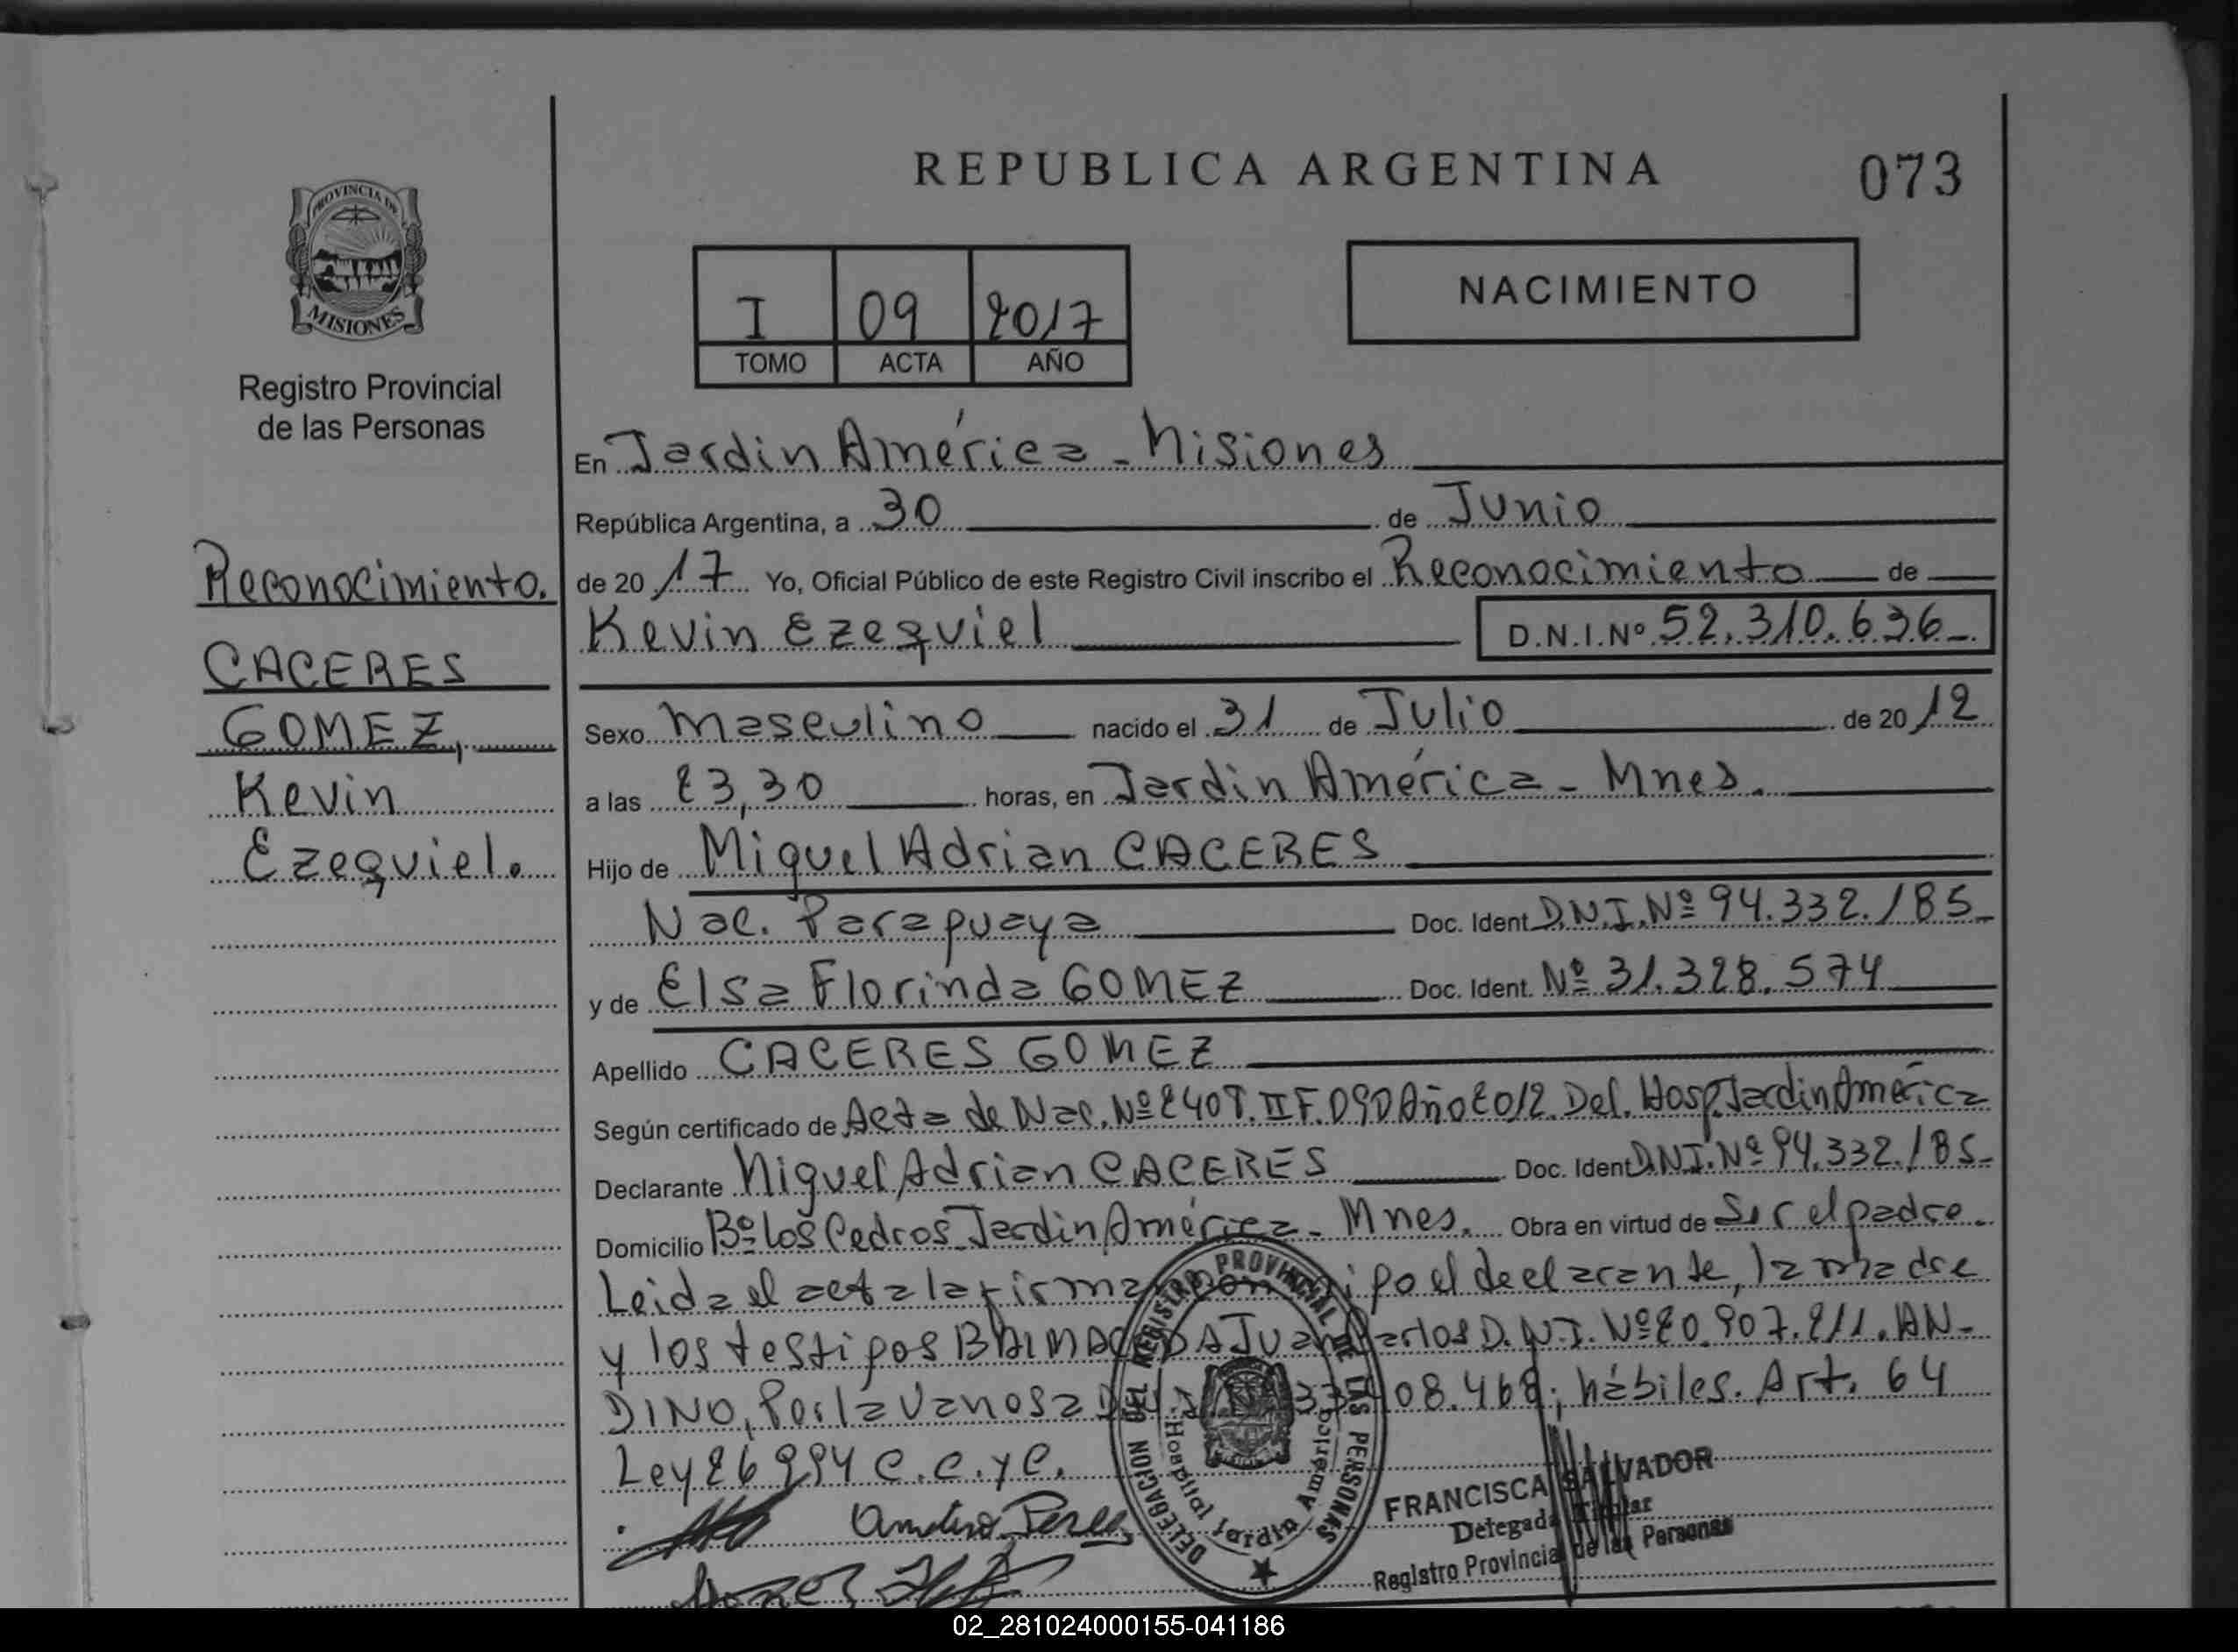 REPUBLICA ARGENTINA
073
PROVINCIA DE
MISIONES
Registro Provincial
de las Personas
I 09 2017
TOMO ACTA AÑO
NACIMIENTO
Reconocimiento.
CACERES
GOMEZ,
Kevin
Ezequiel.
En Jardin América - Misiones
República Argentina, a 30 de Junio
de 20 17 Yo, Oficial Público de este Registro Civil inscribo el Reconocimiento de
Kevin Ezequiel D.N.I.Nº 52.310.636
Sexo Masculino nacido el 31 de Julio de 20 12
a las 23,30 horas, en Jardin América - Mnes.
Hijo de Miguel Adrian CACERES
Nac. Paraguaya Doc. Ident. D.N.I.Nº 94.332.185
y de Elsa Florinda GOMEZ Doc. Ident. Nº 31.328.574
Apellido CACERES GOMEZ
Según certificado de Acta de Nac. Nº 240 T. II F. 090 Año 2012. Del. Hosp. Jardin América
Declarante Miguel Adrian CACERES Doc. Ident D.N.I. Nº 94.332.185
Domicilio Bº Los Cedros Jardin América - Mnes. Obra en virtud de Ser el padre.
Leida el acta la firman el declarante, la madre
y los testigos Juan Carlos D.N.I. Nº 20.907.211. AN-
DINO, Vanosa 08.468; hábiles. Art. 64
Ley 26994 C.C. y C.
DELEGACION DEL REGISTRO PROVINCIAL DE LAS PERSONAS
Hospital Jardin América
FRANCISCA SALVADOR
Delegada Titular
Registro Provincial de las Personas
02_281024000155-041186